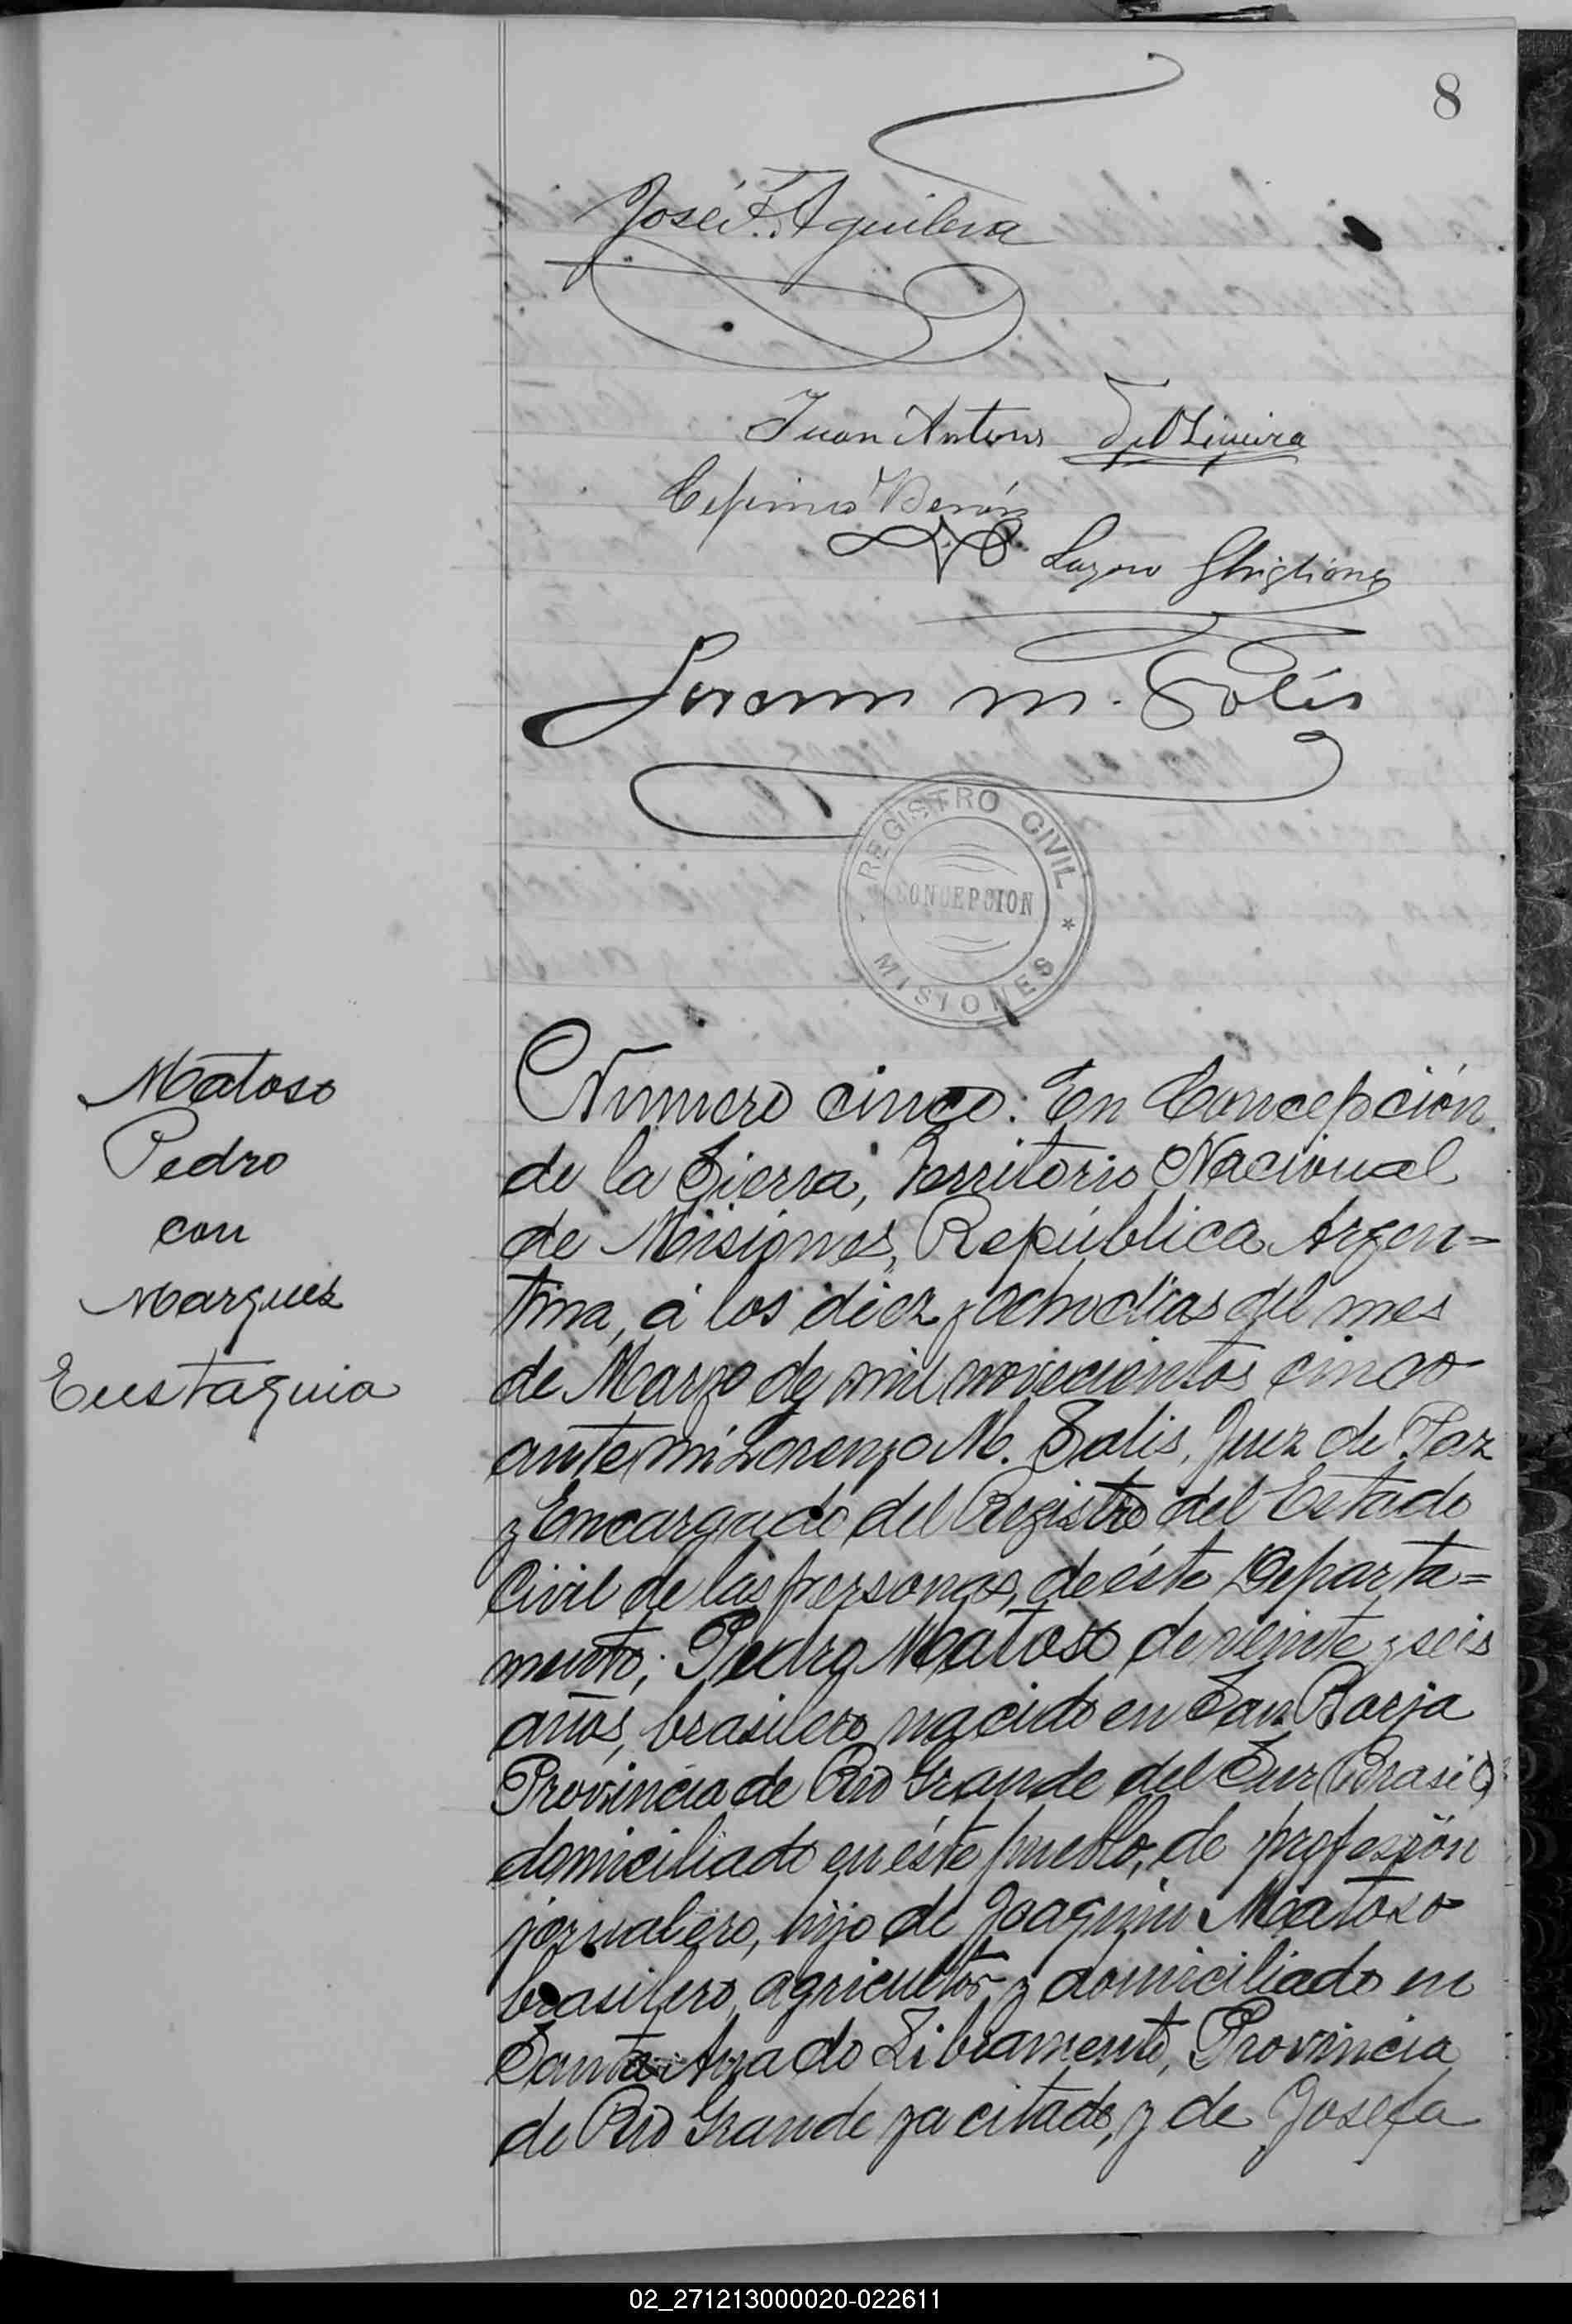 8
José F. Aguilera
Juan Antonio D'Oliveira
Ceferino Benór
Lazaro Ghiglione
Lorenzo M. Solis
REGISTRO CIVIL
CONCEPCION
MISIONES
Matoso
Pedro
con
Marquez
Eustaquia
Numero cinco: En Concepción
de la Sierra, Territorio Nacional
de Misiones, República Argen=
tina, á los diez y ocho dias del mes
de Marzo de mil novecientos cinco
ante mi Lorenzo M. Solis, Juez de Paz
y Encargado del Registro del Estado
Civil de las personas, de éste Departa=
mento; Pedro Matoso de veinte y seis
años, brasilero nacido en San Borja
Provincia de Rio Grande del Sur (Brasil)
domiciliado en éste pueblo, de profesión
jornalero, hijo de Joaquin Matoso
brasilero, agricultor y domiciliado en
Santa Ana do Libramento, Provincia
de Rio Grande ya citado, y de Josefa
02_271213000020-022611